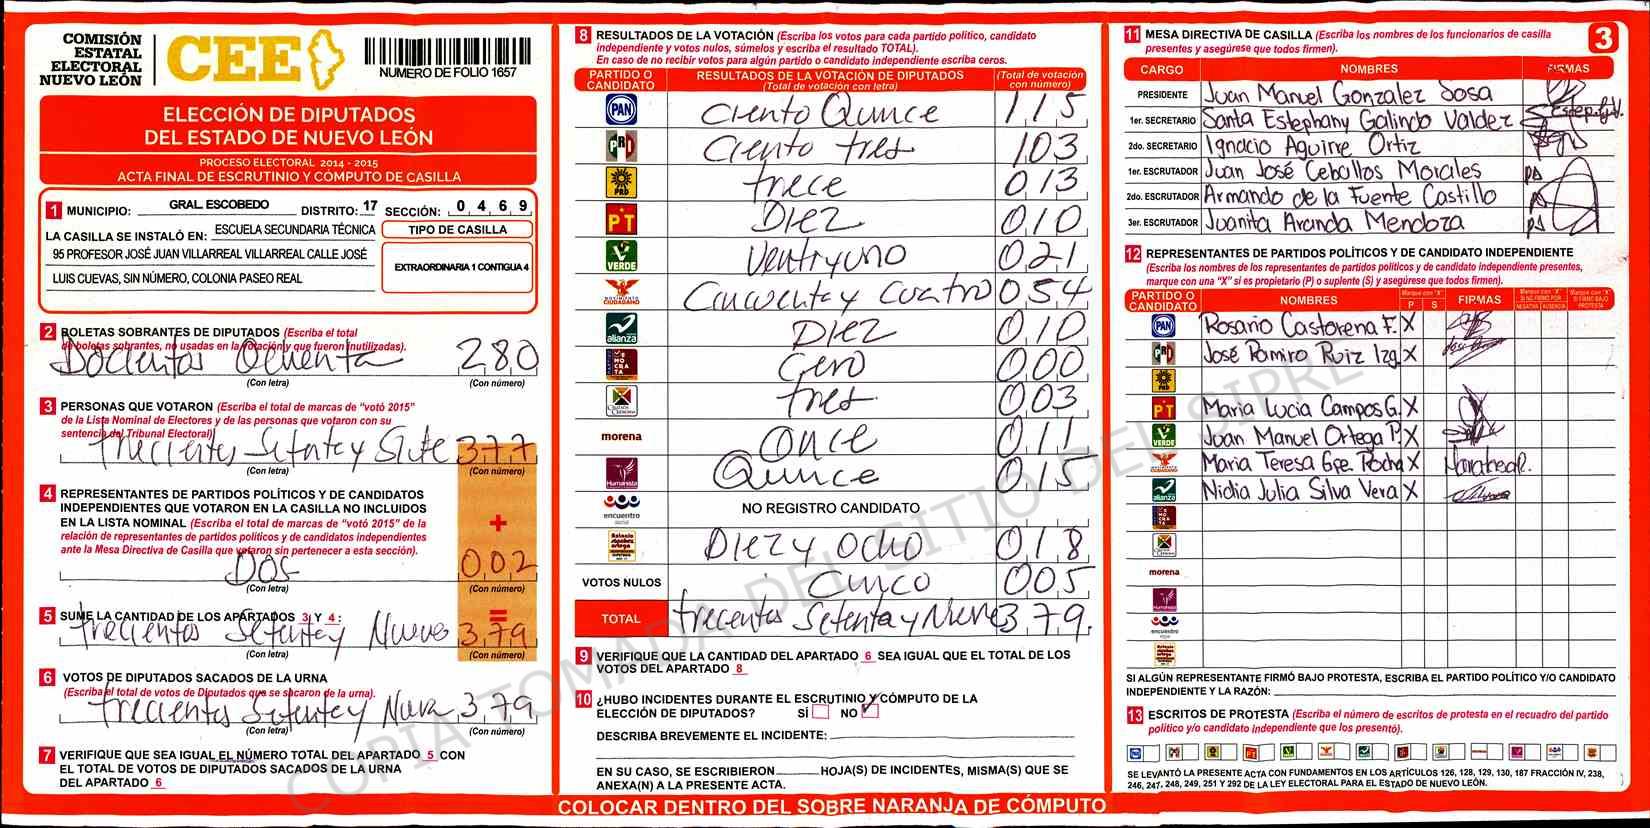 COMISIÓN
ESTATAL
ELECTORAL
NUEVO LEÓN
CEE
NUMERO DE FOLIO 1657
ELECCIÓN DE DIPUTADOS
DEL ESTADO DE NUEVO LEÓN
PROCESO ELECTORAL 2014 - 2015
ACTA FINAL DE ESCRUTINIO Y CÓMPUTO DE CASILLA
1 MUNICIPIO: GRAL. ESCOBEDO DISTRITO: 17 SECCIÓN: 0 4 6 9
LA CASILLA SE INSTALÓ EN: ESCUELA SECUNDARIA TÉCNICA
95 PROFESOR JOSÉ JUAN VILLARREAL VILLARREAL CALLE JOSÉ
LUIS CUEVAS, SIN NÚMERO, COLONIA PASEO REAL
TIPO DE CASILLA
EXTRAORDINARIA 1 CONTIGUA 4
2 BOLETAS SOBRANTES DE DIPUTADOS (Escriba el total
de boletas sobrantes, no usadas en la votación y que fueron inutilizadas).
Docientos Ochenta 280
(Con letra) (Con número)
3 PERSONAS QUE VOTARON (Escriba el total de marcas de "votó 2015"
de la Lista Nominal de Electores y de las personas que votaron con su
sentencia del Tribunal Electoral)
trecientos Setenta y Siete 377
(Con letra) (Con número)
4 REPRESENTANTES DE PARTIDOS POLÍTICOS Y DE CANDIDATOS
INDEPENDIENTES QUE VOTARON EN LA CASILLA NO INCLUIDOS
EN LA LISTA NOMINAL (Escriba el total de marcas de "votó 2015" de la
relación de representantes de partidos políticos y de candidatos independientes
ante la Mesa Directiva de Casilla que votaron sin pertenecer a esta sección).
+
DOS 002
(Con letra) (Con número)
=
5 SUME LA CANTIDAD DE LOS APARTADOS 3 Y 4 :
trecientos Setenta y Nueve 379
(Con letra) (Con número)
6 VOTOS DE DIPUTADOS SACADOS DE LA URNA
(Escriba el total de votos de Diputados que se sacaron de la urna).
trecientos Setenta y Nueve 379
(Con letra) (Con número)
7 VERIFIQUE QUE SEA IGUAL EL NÚMERO TOTAL DEL APARTADO 5 CON
EL TOTAL DE VOTOS DE DIPUTADOS SACADOS DE LA URNA
DEL APARTADO 6
8 RESULTADOS DE LA VOTACIÓN (Escriba los votos para cada partido político, candidato
independiente y votos nulos, súmelos y escriba el resultado TOTAL).
En caso de no recibir votos para algún partido o candidato independiente escriba ceros.
PARTIDO O CANDIDATO
RESULTADOS DE LA VOTACIÓN DE DIPUTADOS
(Total de votación con letra)
(Total de votación con número)
PAN Ciento Quince 115
PRI Ciento tres 103
PRD trece 013
PT Diez 010
VERDE Ventiyuno 021
MOVIMIENTO CIUDADANO Cincuenta y Cuatro 054
alianza Diez 010
DEMOCRATA Cero 000
CRUZADA CIUDADANA tres 003
morena Once 011
Humanista Quince 015
encuentro social NO REGISTRO CANDIDATO
Diez y Ocho 018
VOTOS NULOS Cinco 005
TOTAL trecientos Setenta y Nueve 379.
9 VERIFIQUE QUE LA CANTIDAD DEL APARTADO 6 SEA IGUAL QUE EL TOTAL DE LOS
VOTOS DEL APARTADO 8
10 ¿HUBO INCIDENTES DURANTE EL ESCRUTINIO Y CÓMPUTO DE LA
ELECCIÓN DE DIPUTADOS? SÍ NO ✓
DESCRIBA BREVEMENTE EL INCIDENTE:
EN SU CASO, SE ESCRIBIERON HOJA(S) DE INCIDENTES, MISMA(S) QUE SE
ANEXA(N) A LA PRESENTE ACTA.
11 MESA DIRECTIVA DE CASILLA (Escriba los nombres de los funcionarios de casilla
presentes y asegúrese que todos firmen).
3
CARGO NOMBRES FIRMAS
PRESIDENTE Juan Manuel Gonzalez Sosa
1er. SECRETARIO Santa Estephany Galindo Valdez
2do. SECRETARIO Ignacio Aguirre Ortiz
1er. ESCRUTADOR Juan José Ceballos Morales
2do. ESCRUTADOR Armando de la Fuente Castillo
3er. ESCRUTADOR Juanita Aranda Mendoza
12 REPRESENTANTES DE PARTIDOS POLÍTICOS Y DE CANDIDATO INDEPENDIENTE
(Escriba los nombres de los representantes de partidos políticos y de candidato independiente presentes,
marque con una "X" si es propietario (P) o suplente (S) y asegúrese que todos firmen).
PARTIDO O CANDIDATO NOMBRES Marque con "X" P S FIRMAS Marque con "X" SI NO FIRMÓ POR NEGATIVA AUSENCIA Marque con "X" SI FIRMÓ BAJO PROTESTA
PAN Rosario Castorena F. X
PRI José Ramiro Ruiz Izg X
PRD
PT Maria Lucia Campos G. X
VERDE Juan Manuel Ortega P. X
Maria Teresa Gpe. Rocha X
alianza Nidia Julia Silva Vera X
morena
Humanista
encuentro
SI ALGÚN REPRESENTANTE FIRMÓ BAJO PROTESTA, ESCRIBA EL PARTIDO POLÍTICO Y/O CANDIDATO
INDEPENDIENTE Y LA RAZÓN:
13 ESCRITOS DE PROTESTA (Escriba el número de escritos de protesta en el recuadro del partido
político y/o candidato independiente que los presentó).
SE LEVANTÓ LA PRESENTE ACTA CON FUNDAMENTOS EN LOS ARTÍCULOS 126, 128, 129, 130, 187 FRACCIÓN IV, 238,
246, 247, 248, 249, 251 Y 292 DE LA LEY ELECTORAL PARA EL ESTADO DE NUEVO LEÓN.
COLOCAR DENTRO DEL SOBRE NARANJA DE CÓMPUTO
COPIA TOMADA DEL SITIO DEL SIPRE